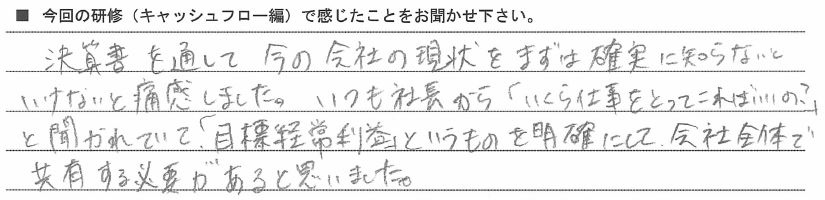 ■ 今回の研修（キャッシュフロー編）で感じたことをお聞かせ下さい。
決算書を通して今の会社の現状をまずは確実に知らないと
いけないと痛感しました。いつも社長から「いくら仕事をとってこればいいの?」
と聞かれていて、「目標経常利益」というものを明確にして、会社全体で
共有する必要があると思いました。